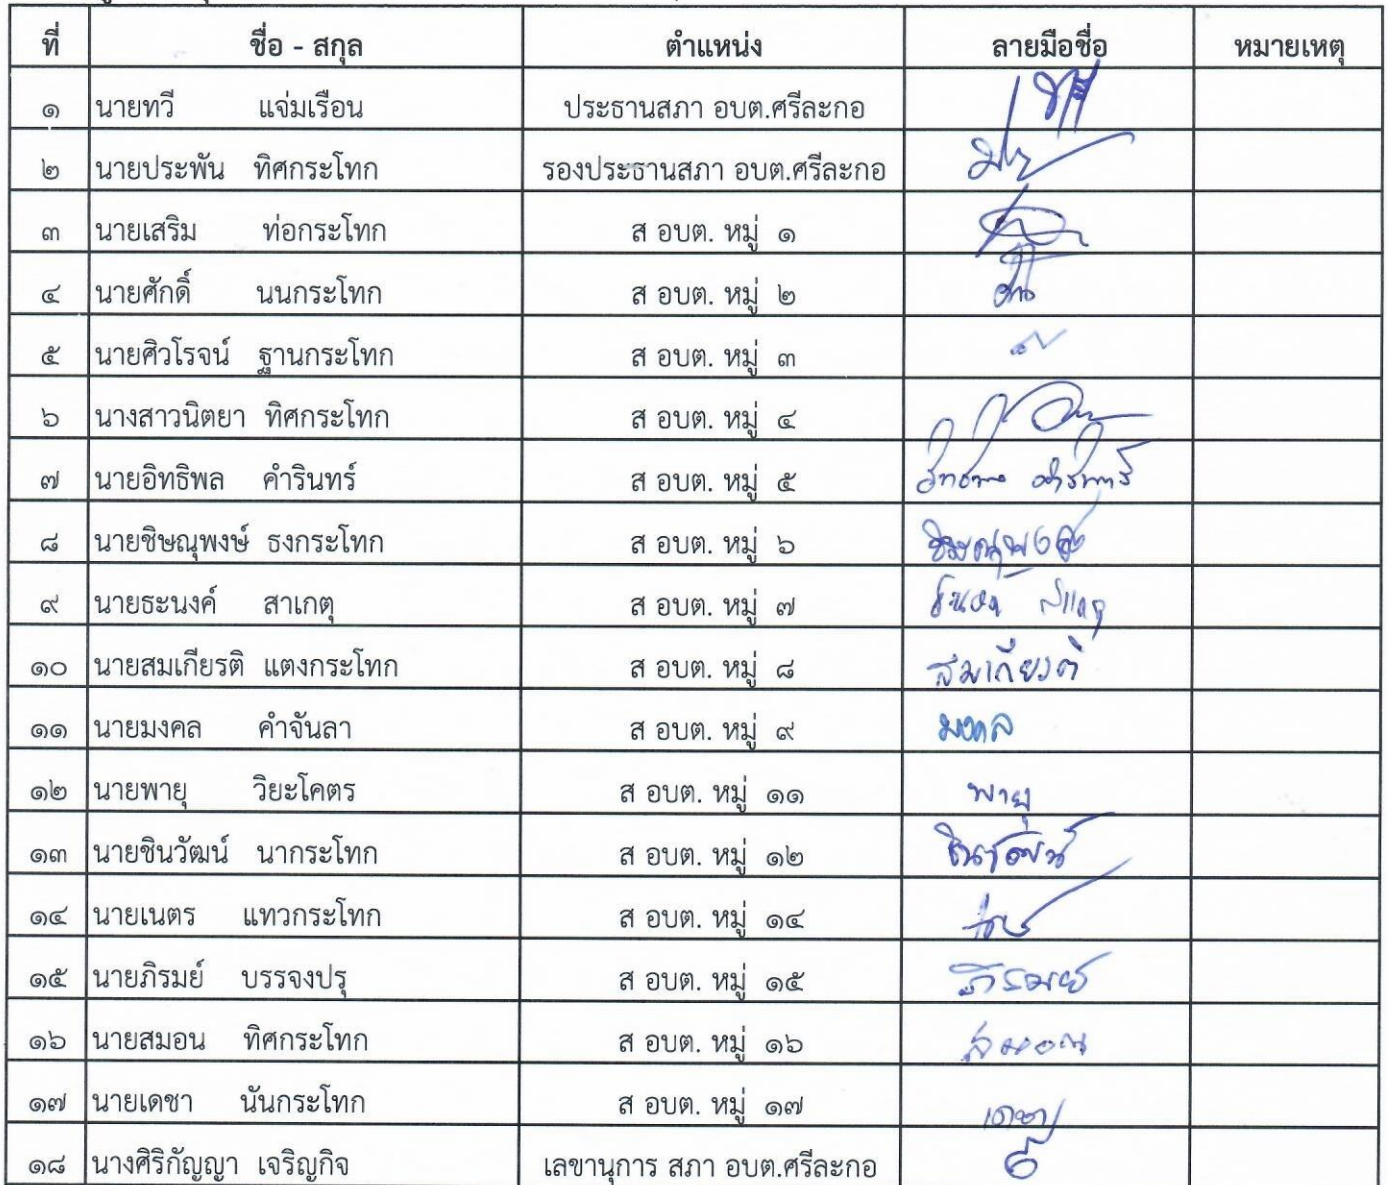 ที่ ชื่อ - สกุล ตำแหน่ง ลายมือชื่อ หมายเหตุ
๑ นายทวี แจ่มเรือน ประธานสภา อบต.ศรีละกอ
๒ นายประพัน ทิศกระโทก รองประธานสภา อบต.ศรีละกอ
๓ นายเสริม ท่อกระโทก ส อบต. หมู่ ๑
๔ นายศักดิ์ นนกระโทก ส อบต. หมู่ ๒
๕ นายศิวโรจน์ ฐานกระโทก ส อบต. หมู่ ๓
๖ นางสาวนิตยา ทิศกระโทก ส อบต. หมู่ ๔
๗ นายอิทธิพล คำรินทร์ ส อบต. หมู่ ๕
๘ นายชิษณุพงษ์ ธงกระโทก ส อบต. หมู่ ๖
๙ นายธะนงค์ สาเกตุ ส อบต. หมู่ ๗
๑๐ นายสมเกียรติ แตงกระโทก ส อบต. หมู่ ๘ สมเกียรติ
๑๑ นายมงคล คำจันลา ส อบต. หมู่ ๙ มงคล
๑๒ นายพายุ วิยะโคตร ส อบต. หมู่ ๑๑ พายุ
๑๓ นายชินวัฒน์ นากระโทก ส อบต. หมู่ ๑๒ ชินวัฒน์
๑๔ นายเนตร แทวกระโทก ส อบต. หมู่ ๑๔
๑๕ นายภิรมย์ บรรจงปรุ ส อบต. หมู่ ๑๕ ภิรมย์
๑๖ นายสมอน ทิศกระโทก ส อบต. หมู่ ๑๖ สมอน
๑๗ นายเดชา นันกระโทก ส อบต. หมู่ ๑๗ เดชา
๑๘ นางศิริกัญญา เจริญกิจ เลขานุการ สภา อบต.ศรีละกอ